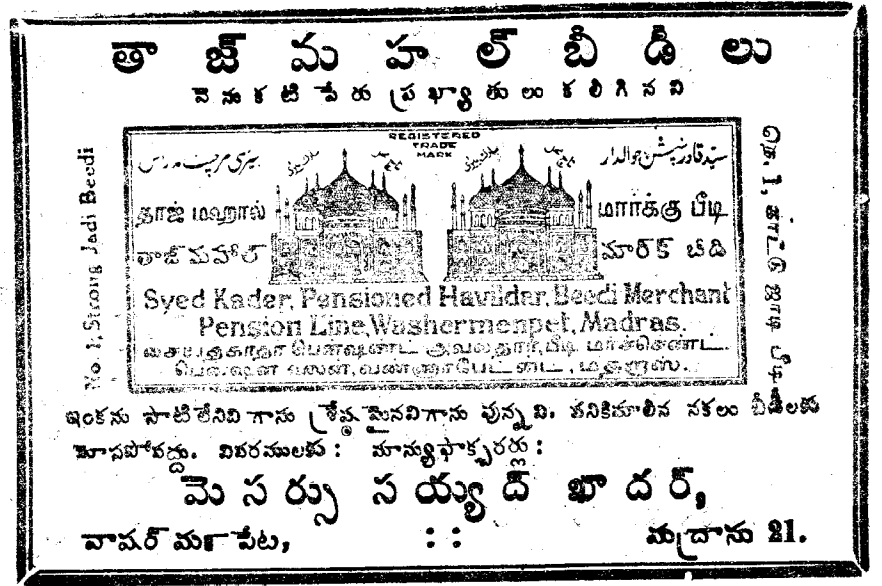 తాజ్ మహల్ బీడీలు
వెనుకటి పేరు ప్రఖ్యాతులు కలిగినవి
No. 1, Strong Jadi Beedi
REGISTERED
TRADE
MARK
தாஜ் மஹால் மார்க்கு பீடி
తాజ్ మహాల్ మార్క్ బీడి
Syed Kader, Pensioned Havildar, Beedi Merchant
Pension Line, Washermenpet, Madras.
நெ. 1, காட்டு ஜாடி பீடி
ఇంకను సాటిలేనివిగాను శ్రేష్ఠమైనవిగాను వున్నవి. పనికిమాలిన నకలు బీడీలకు
మోసపోవద్దు. వివరములకు : మాన్యుఫాక్చరర్లు :
మెసర్సు సయ్యద్ ఖాదర్,
వాషర్ మన్ పేట, : : మద్రాసు 21.